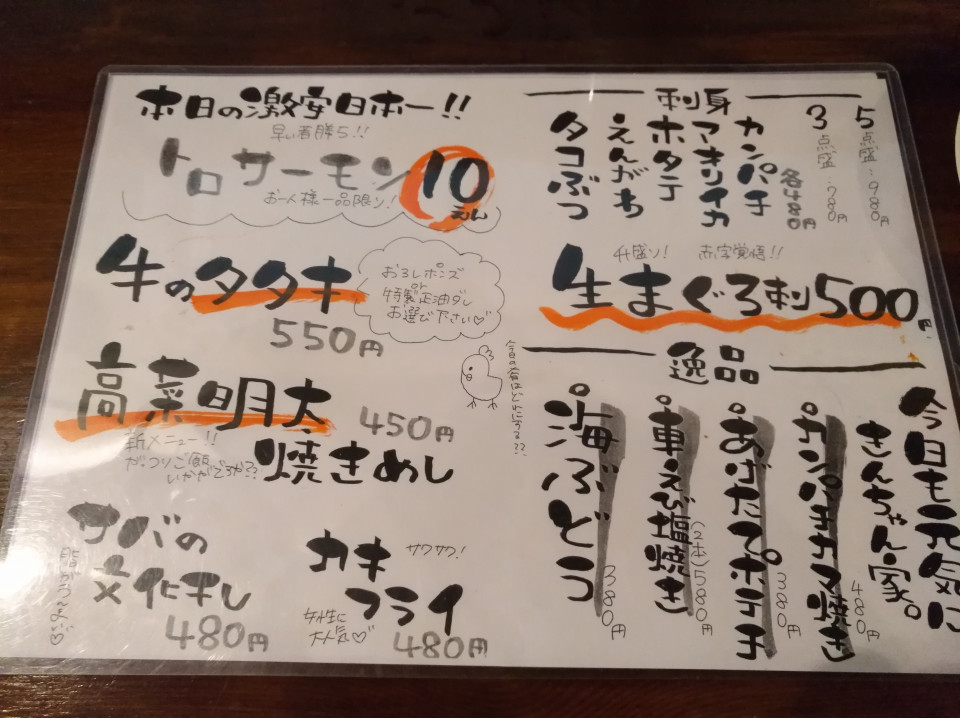 本日の激安日本一!!
早い者勝ち!!
トロサーモン 10えん
お一人様一品限り!
牛のタタキ
550円
おろしポンズ
or
特製正油ダレ
お選び下さい♡
高菜明太
焼きめし
450円
新メニュー!!
がっつりご飯
いかがでろか??
サバの
文化干し
480円
カキ
フライ
サクサク!
女性に
大人気♡
480円
刺身
5点盛:980円
3点盛:780円
カンパチ
マキリイカ
ホタテ
えんがわ
タコぶつ
各480円
山盛り! 赤字覚悟!!
生まぐろ刺500円
逸品
今日も元気に
きんちゃん家。
カンパチカマ焼き
480円
あげたてポテチ
380円
車えび塩焼き
(2本)580円
海ぶどう
380円